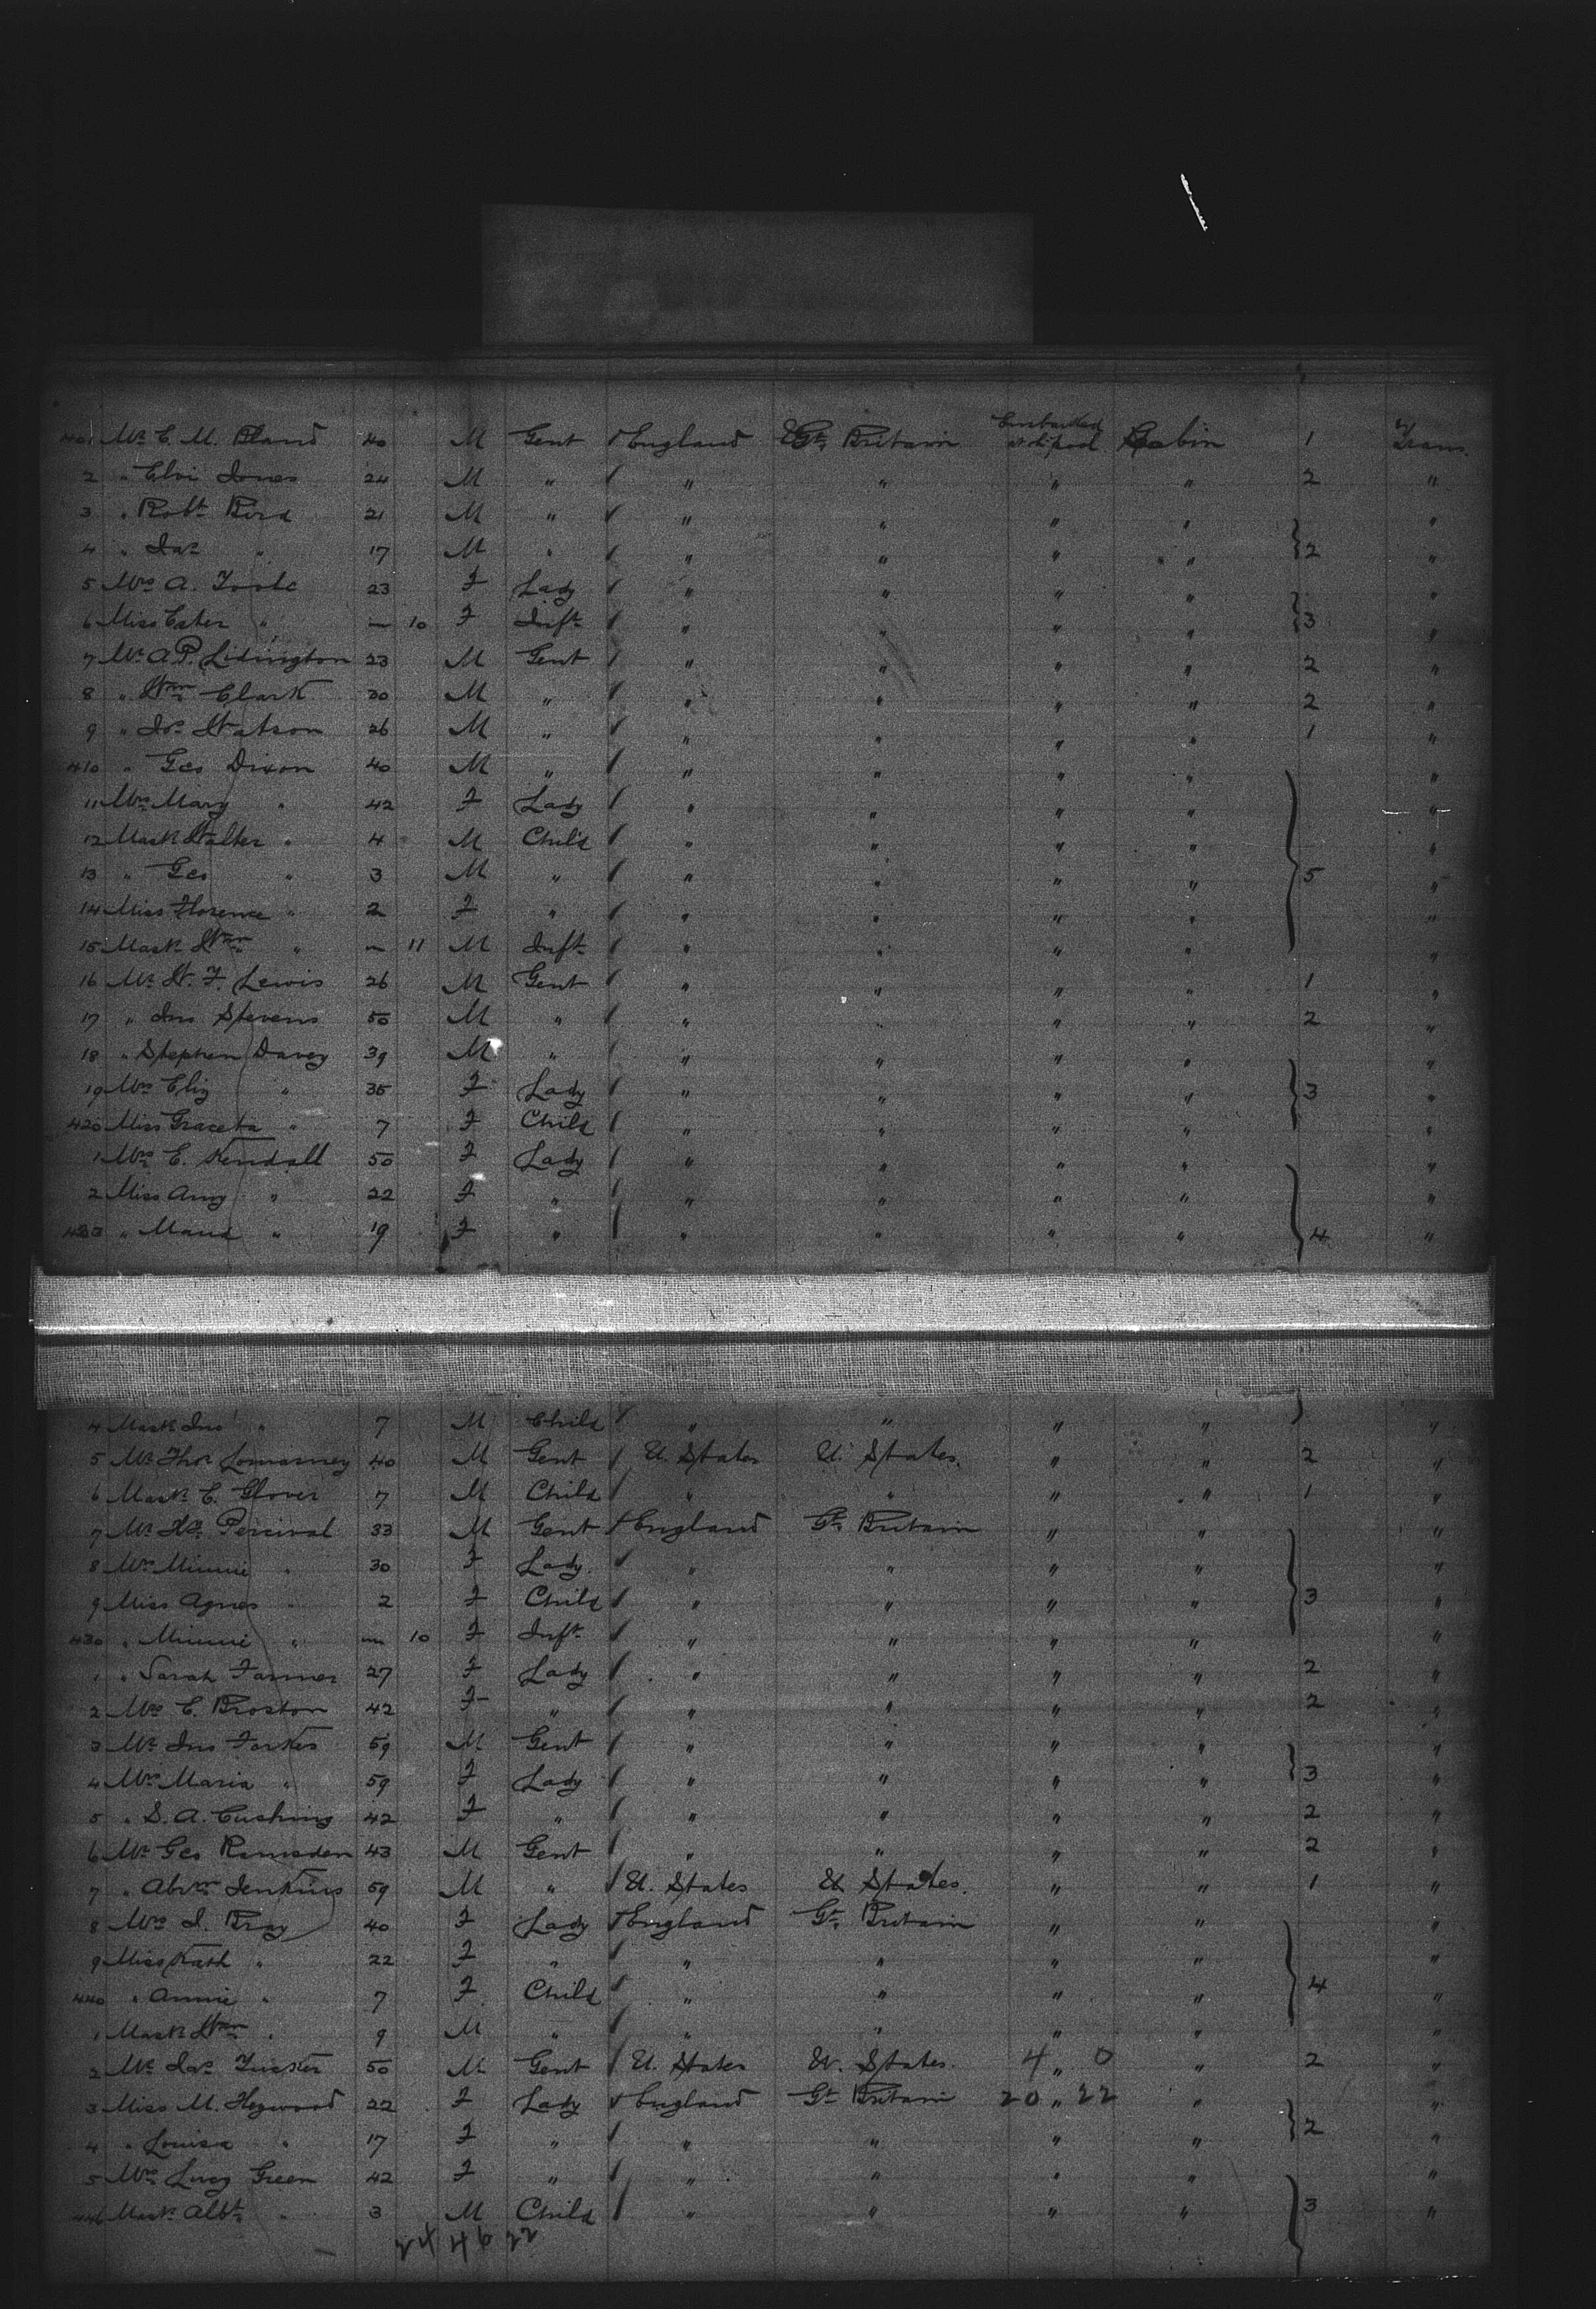 401 Mr E. M. Bland 40 M Gent England Gt Britain Embarked at L'pool Cabin 1 Trans.
2 " Elvi Jones 24 M " " " " " 2 "
3 " Robt Bird 21 M " " " " " "
4 " Jas " 17 M " " " " " 2 "
5 Mrs A. Toole 23 F Lady " " " " "
6 Miss Ester " — 10 F Inft " " " " 3 "
7 Mr A. P. Lidington 23 M Gent " " " " 2 "
8 " Wm Clark 30 M " " " " " 2 "
9 " Jos Watson 26 M " " " " " 1 "
410 " Geo Dixon 40 M " " " " " "
11 Mrs Mary " 42 F Lady " " " " "
12 Mast Walter " 4 M Child " " " " "
13 " Geo " 3 M " " " " " 5 "
14 Miss Florence " 2 F " " " " " "
15 Mast Wm " — 11 M Inft " " " " "
16 Mr W. F. Lewis 26 M Gent " " " " 1 "
17 " Jno Stevens 50 M " " " " " 2 "
18 " Stephen Davey 39 M " " " " " "
19 Mrs Eliz " 35 F Lady " " " " 3 "
420 Miss Graceta " 7 F Child " " " " "
1 Mrs E. Kendall 50 F Lady " " " " "
2 Miss Amy " 22 F " " " " " "
423 " Maud " 19 F " " " " " 4 "
4 Mast Jno " 7 M Child " " " " "
5 Mr Thos 40 M Gent U. States U. States. " " 2 "
6 Mast E. Glover 7 M Child " " " " 1 "
7 Mr Hy Percival 33 M Gent England Gt Britain " " "
8 Mrs Minnie " 30 F Lady. " " " " "
9 Miss Agnes " 2 F Child " " " " 3 "
430 " Minnie " — 10 F Inft " " " " "
1 " Sarah Farmer 27 F Lady " " " " 2 "
2 Mrs E. Broston 42 F " " " " " 2 "
3 Mr Jno Forkes 59 M Gent " " " " "
4 Mrs Maria " 59 F Lady " " " " 3 "
5 " S. A. Cushing 42 F " " " " " 2 "
6 Mr Geo Ramsden 43 M Gent " " " " 2 "
7 " Abrm Jenkins 59 M " U. States U States. " " 1 "
8 Mrs J. Bray 40 F Lady England Gt Britain " " "
9 Miss Kath " 22 F " " " " " "
440 " Annie " 7 F. Child " " " " 4 "
1 Mast Wm " 9 M " " " " " "
2 Mr Jas Tucker 50 M Gent U. States U. States. 4 " 0 " 2 "
3 Miss M. Heywood 22 F Lady England Gt Britain 20 " 22 " "
4 " Louisa " 17 F " " " " " 2 "
5 Mrs Lucy Green 42 F " " " " " "
446 Mast Albt " 3 M Child " " " " 3 "
24 46 22